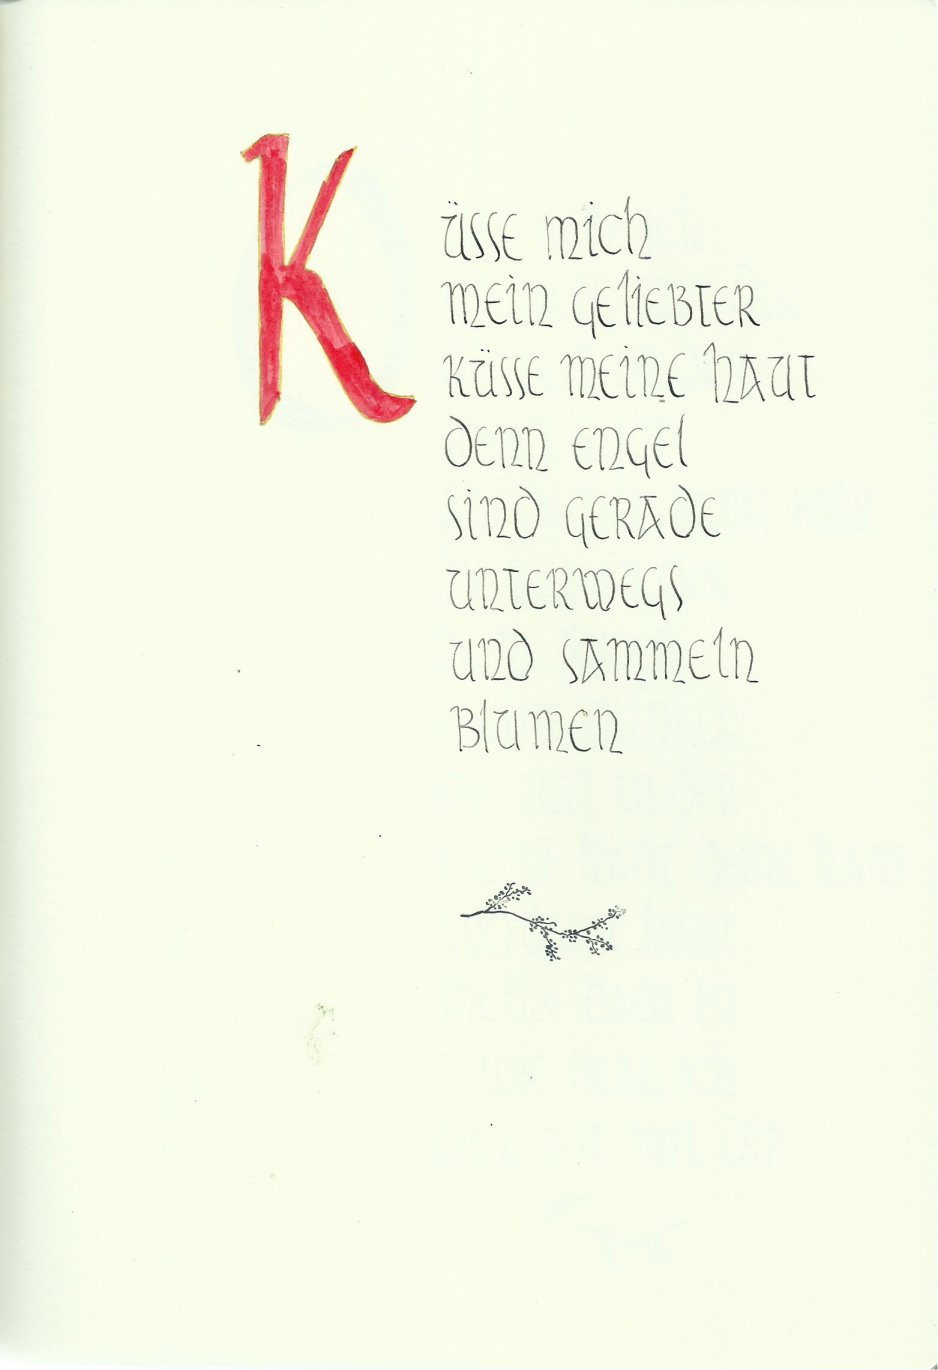 Küsse mich
mein geliebter
küsse meine haut
denn engel
sind gerade
unterwegs
und sammeln
Blumen